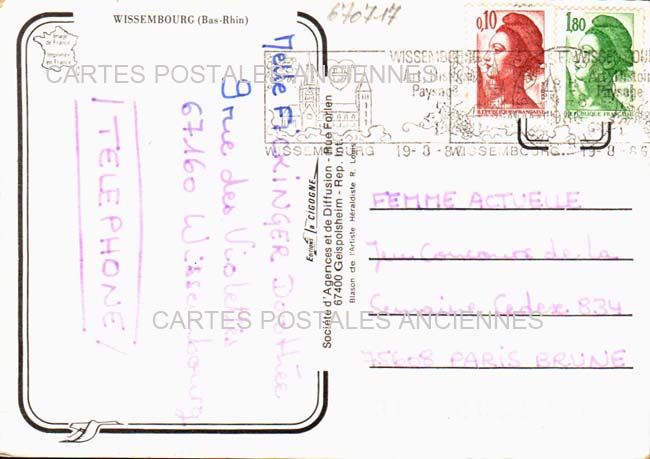 WISSEMBOURG (Bas-Rhin)
6707-17
Image de France
Imprimée en France
CARTES POSTALES ANCIENNES
WISSEMBOURG
Paysage
WISSEMBOURG 19-8-86
WISSEMBOURG 19-8-86
0,10
REPUBLIQUE FRANÇAISE
1,80
REPUBLIQUE FRANÇAISE
Melle FICKINGER Dorothée
9 rue des Violettes
67160 Wissembourg
/ TELEPHONE /
Editions la CIGOGNE
Société d'Agences et de Diffusion - Rue Forlen
67400 Geispolsheim - Rep. Int.
Blason de l'Artiste Héraldiste R. Louis
FEMME ACTUELLE
Jeu Concours de la
Semaine Cedex 834
75608 PARIS BRUNE
CARTES POSTALES ANCIENNES